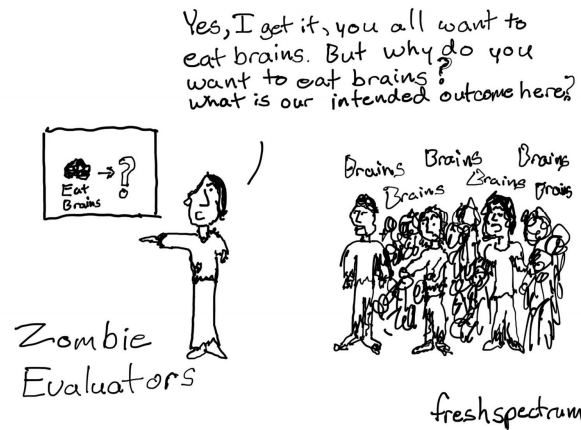 Yes, I get it, you all want to
eat brains. But why do you
want to eat brains?
What is our intended outcome here?
Eat
Brains
→ ?
Brains Brains Brains
Brains Brains Brains
Zombie
Evaluators
freshspectrum